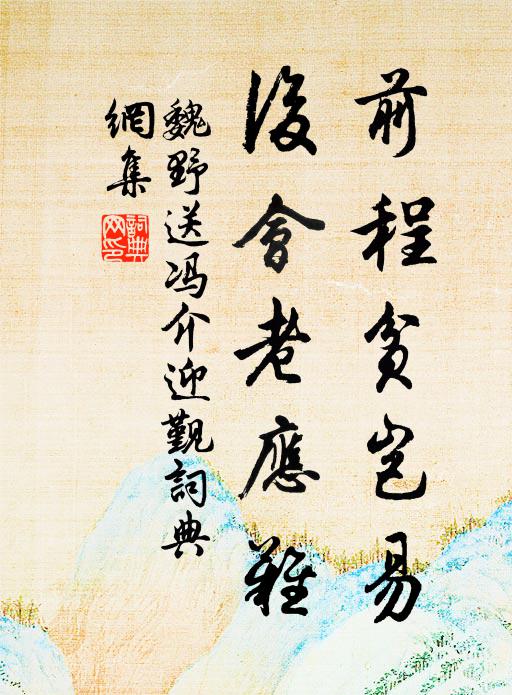 前程貧豈易
後會老應難
魏野送馮介迎覲詞典
網集
詞典網印